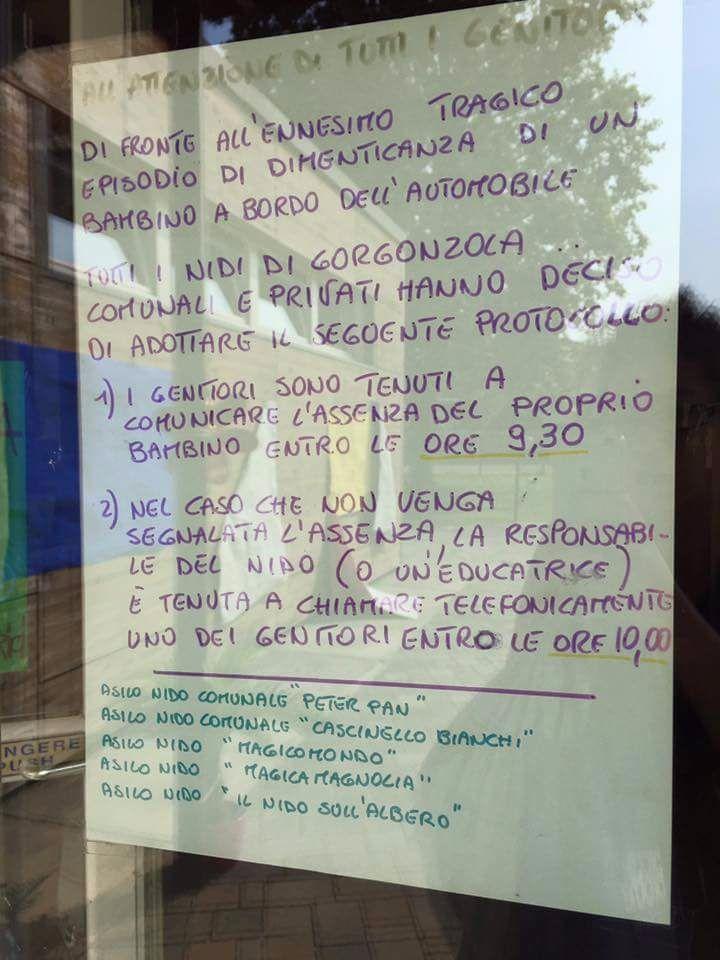 ALL'ATTENZIONE DI TUTTI I GENITORI
DI FRONTE ALL'ENNESIMO TRAGICO
EPISODIO DI DIMENTICANZA DI UN
BAMBINO A BORDO DELL'AUTOMOBILE
TUTTI I NIDI DI GORGONZOLA
COMUNALI E PRIVATI HANNO DECISO
DI ADOTTARE IL SEGUENTE PROTOCOLLO:
1) I GENITORI SONO TENUTI A
COMUNICARE L'ASSENZA DEL PROPRIO
BAMBINO ENTRO LE ORE 9,30
2) NEL CASO CHE NON VENGA
SEGNALATA L'ASSENZA, LA RESPONSABI-
LE DEL NIDO (O UN'EDUCATRICE)
È TENUTA A CHIAMARE TELEFONICAMENTE
UNO DEI GENITORI ENTRO LE ORE 10,00
ASILO NIDO COMUNALE "PETER PAN"
ASILO NIDO COMUNALE "CASCINELLO BIANCHI"
ASILO NIDO "MAGICOMONDO"
ASILO NIDO "MAGICA MAGNOLIA"
ASILO NIDO "IL NIDO SULL'ALBERO"
NGERE
PUSH